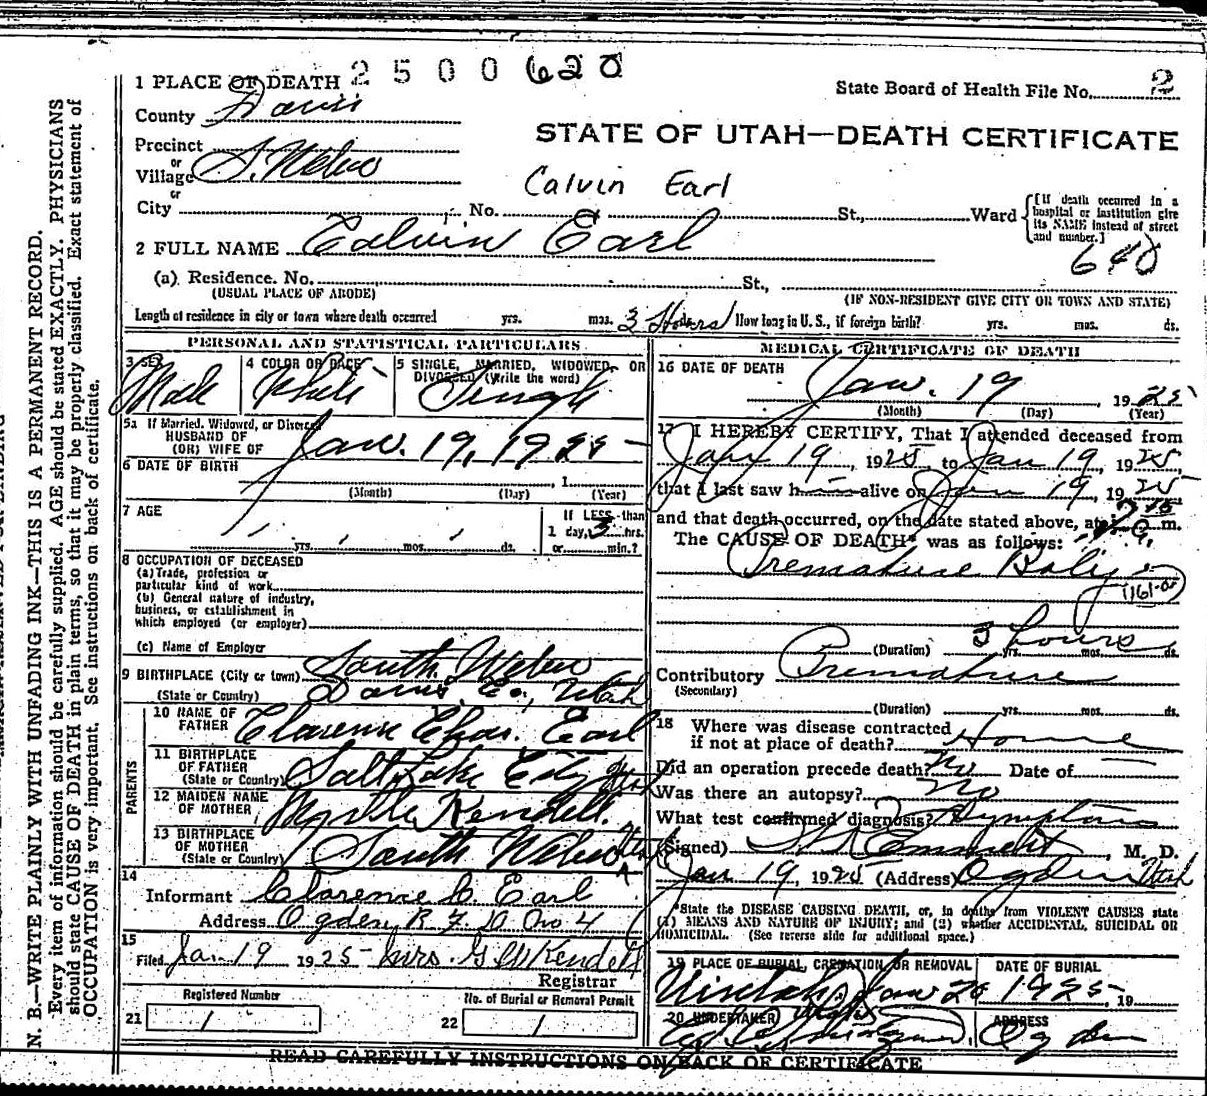 1 PLACE OF DEATH 2500620
State Board of Health File No. 2
County Davis
STATE OF UTAH—DEATH CERTIFICATE
Precinct
or
Village S. Weber
Calvin Earl
or
City No. St., Ward
[If death occurred in a
hospital or institution give
its NAME instead of street
and number.]
2 FULL NAME Calvin Earl
640
(a) Residence. No. St.,
(USUAL PLACE OF ABODE) (IF NON-RESIDENT GIVE CITY OR TOWN AND STATE)
Length of residence in city or town where death occurred yrs. mos. 3 Hours How long in U. S., if foreign birth? yrs. mos. ds.
PERSONAL AND STATISTICAL PARTICULARS
3 SEX
Male
4 COLOR OR RACE
White
5 SINGLE, MARRIED, WIDOWED, OR
DIVORCED (Write the word)
Single
5a If Married, Widowed, or Divorced
HUSBAND OF
(OR) WIFE OF
Jan. 19, 1925
6 DATE OF BIRTH
, 1
(Month) (Day) (Year)
7 AGE
If LESS than
1 day, 3 hrs.
yrs. mos. ds. or min.?
8 OCCUPATION OF DECEASED
(a) Trade, profession or
particular kind of work
(b) General nature of industry,
business, or establishment in
which employed (or employer)
(c) Name of Employer
9 BIRTHPLACE (City or town) South Weber
(State or Country) Davis Co., Utah
PARENTS
10 NAME OF
FATHER Clarence Chas. Earl
11 BIRTHPLACE
OF FATHER
(State or Country) Salt Lake City Utah
12 MAIDEN NAME
OF MOTHER Myrtle Kendell.
13 BIRTHPLACE
OF MOTHER
(State or Country) South Weber Utah
14
Informant Clarence C. Earl
Address Ogden R F D No 4
15
Filed Jan 19 1925 Mrs. G W Kendell
Registrar
Registered Number
21 1
No. of Burial or Removal Permit
22 1
MEDICAL CERTIFICATE OF DEATH
16 DATE OF DEATH
Jan. 19 1925
(Month) (Day) (Year)
17 I HEREBY CERTIFY, That I attended deceased from
Jan 19, 1925 to Jan 19, 1925,
that I last saw him alive on Jan 19, 1925
and that death occurred, on the date stated above, at m.
The CAUSE OF DEATH* was as follows:
Premature Baby
(161-a)
3 hours
(Duration) yrs. mos. ds.
Contributory Premature
(Secondary)
(Duration) yrs. mos. ds.
18 Where was disease contracted
if not at place of death? Home
Did an operation precede death? No Date of
Was there an autopsy? No
What test confirmed diagnosis? Symptoms
(Signed) Emmett, M. D.
Jan 19, 1925 (Address) Ogden Utah
*State the DISEASE CAUSING DEATH, or, in deaths from VIOLENT CAUSES state
(1) MEANS AND NATURE OF INJURY; and (2) whether ACCIDENTAL, SUICIDAL OR
HOMICIDAL. (See reverse side for additional space.)
19 PLACE OF BURIAL, CREMATION, OR REMOVAL DATE OF BURIAL
Uintah Utah Jan 20 1925, 19
20 UNDERTAKER ADDRESS
Ogden
READ CAREFULLY INSTRUCTIONS ON BACK OF CERTIFICATE
N. B.—WRITE PLAINLY WITH UNFADING INK—THIS IS A PERMANENT RECORD.
Every item of information should be carefully supplied. AGE should be stated EXACTLY. PHYSICIANS
should state CAUSE OF DEATH in plain terms, so that it may be properly classified. Exact statement of
OCCUPATION is very important. See instructions on back of certificate.